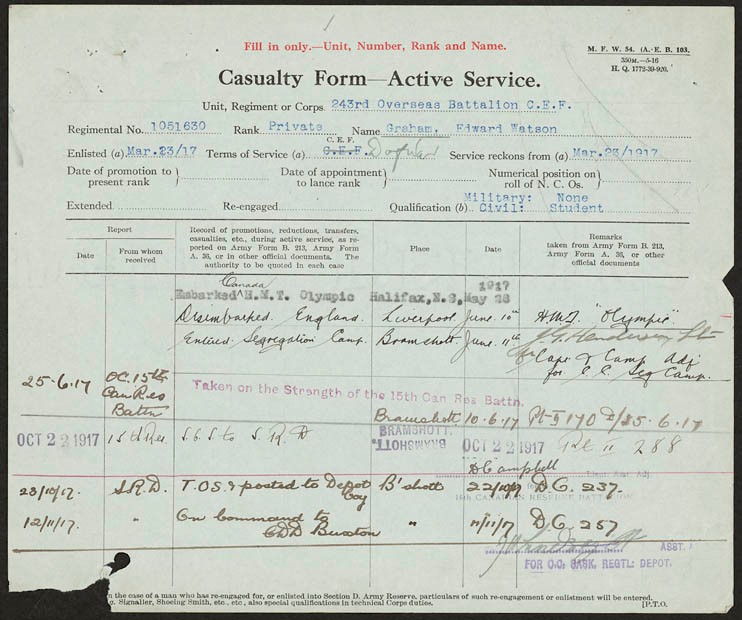 Fill in only.—Unit, Number, Rank and Name.
M. F. W. 54. (A.-E. B. 103.
350M.—5-16
H. Q. 1772-39-920.
Casualty Form—Active Service.
Unit, Regiment or Corps 243rd Overseas Battalion C.E.F.
Regimental No. 1051630 Rank Private Name Graham, Edward Watson
C.E.F.
Enlisted (a) Mar.23/17 Terms of Service (a) C.E.F. Service reckons from (a) Mar.23/1917
Date of promotion to present rank } Date of appointment to lance rank } Numerical position on roll of N. C. Os. }
Extended Re-engaged Qualification (b) Military: None
Civil: Student
Report
Date
From whom received
Record of promotions, reductions, transfers, casualties, etc., during active service, as reported on Army Form B. 213, Army Form A. 36, or in other official documents. The authority to be quoted in each case
Place
Date
Remarks
taken from Army Form B. 213, Army Form A. 36, or other official documents
Canada 1917
Embarked H.M.T. Olympic Halifax, N.S, May 28
Disembarked England. Liverpool June 10th H.M.T. "Olympic"
Entered Segregation Camp. Bramshott. June 11th J.G. Henderson Lt
Capt & Camp Adj
for Seg Camp.
25.6.17 OC. 15th Can Res Battn Taken on the Strength of the 15th Can Res Battn.
Bramshott 10.6.17 Pt II 170 d/25.6.17
OCT 22 1917 15th Res S.O.S to S.R.D BRAMSHOTT. OCT 22 1917 Pt II 288
BRAMSHOTT
H Campbell
23/10/17. S.R.D. T.O.S. & posted to Depot Coy B'shott 22/10/17 D.O. 237.
12/11/17. " On Command to CDD Buxton " 11/11/17 D.O. 257
ASST. A
FOR O.C. SASK. REGTL: DEPOT.
n the case of a man who has re-engaged for, or enlisted into Section D. Army Reserve, particulars of such re-engagement or enlistment will be entered.
g. Signaller, Shoeing Smith, etc., etc., also special qualifications in technical Corps duties.
[P.T.O.